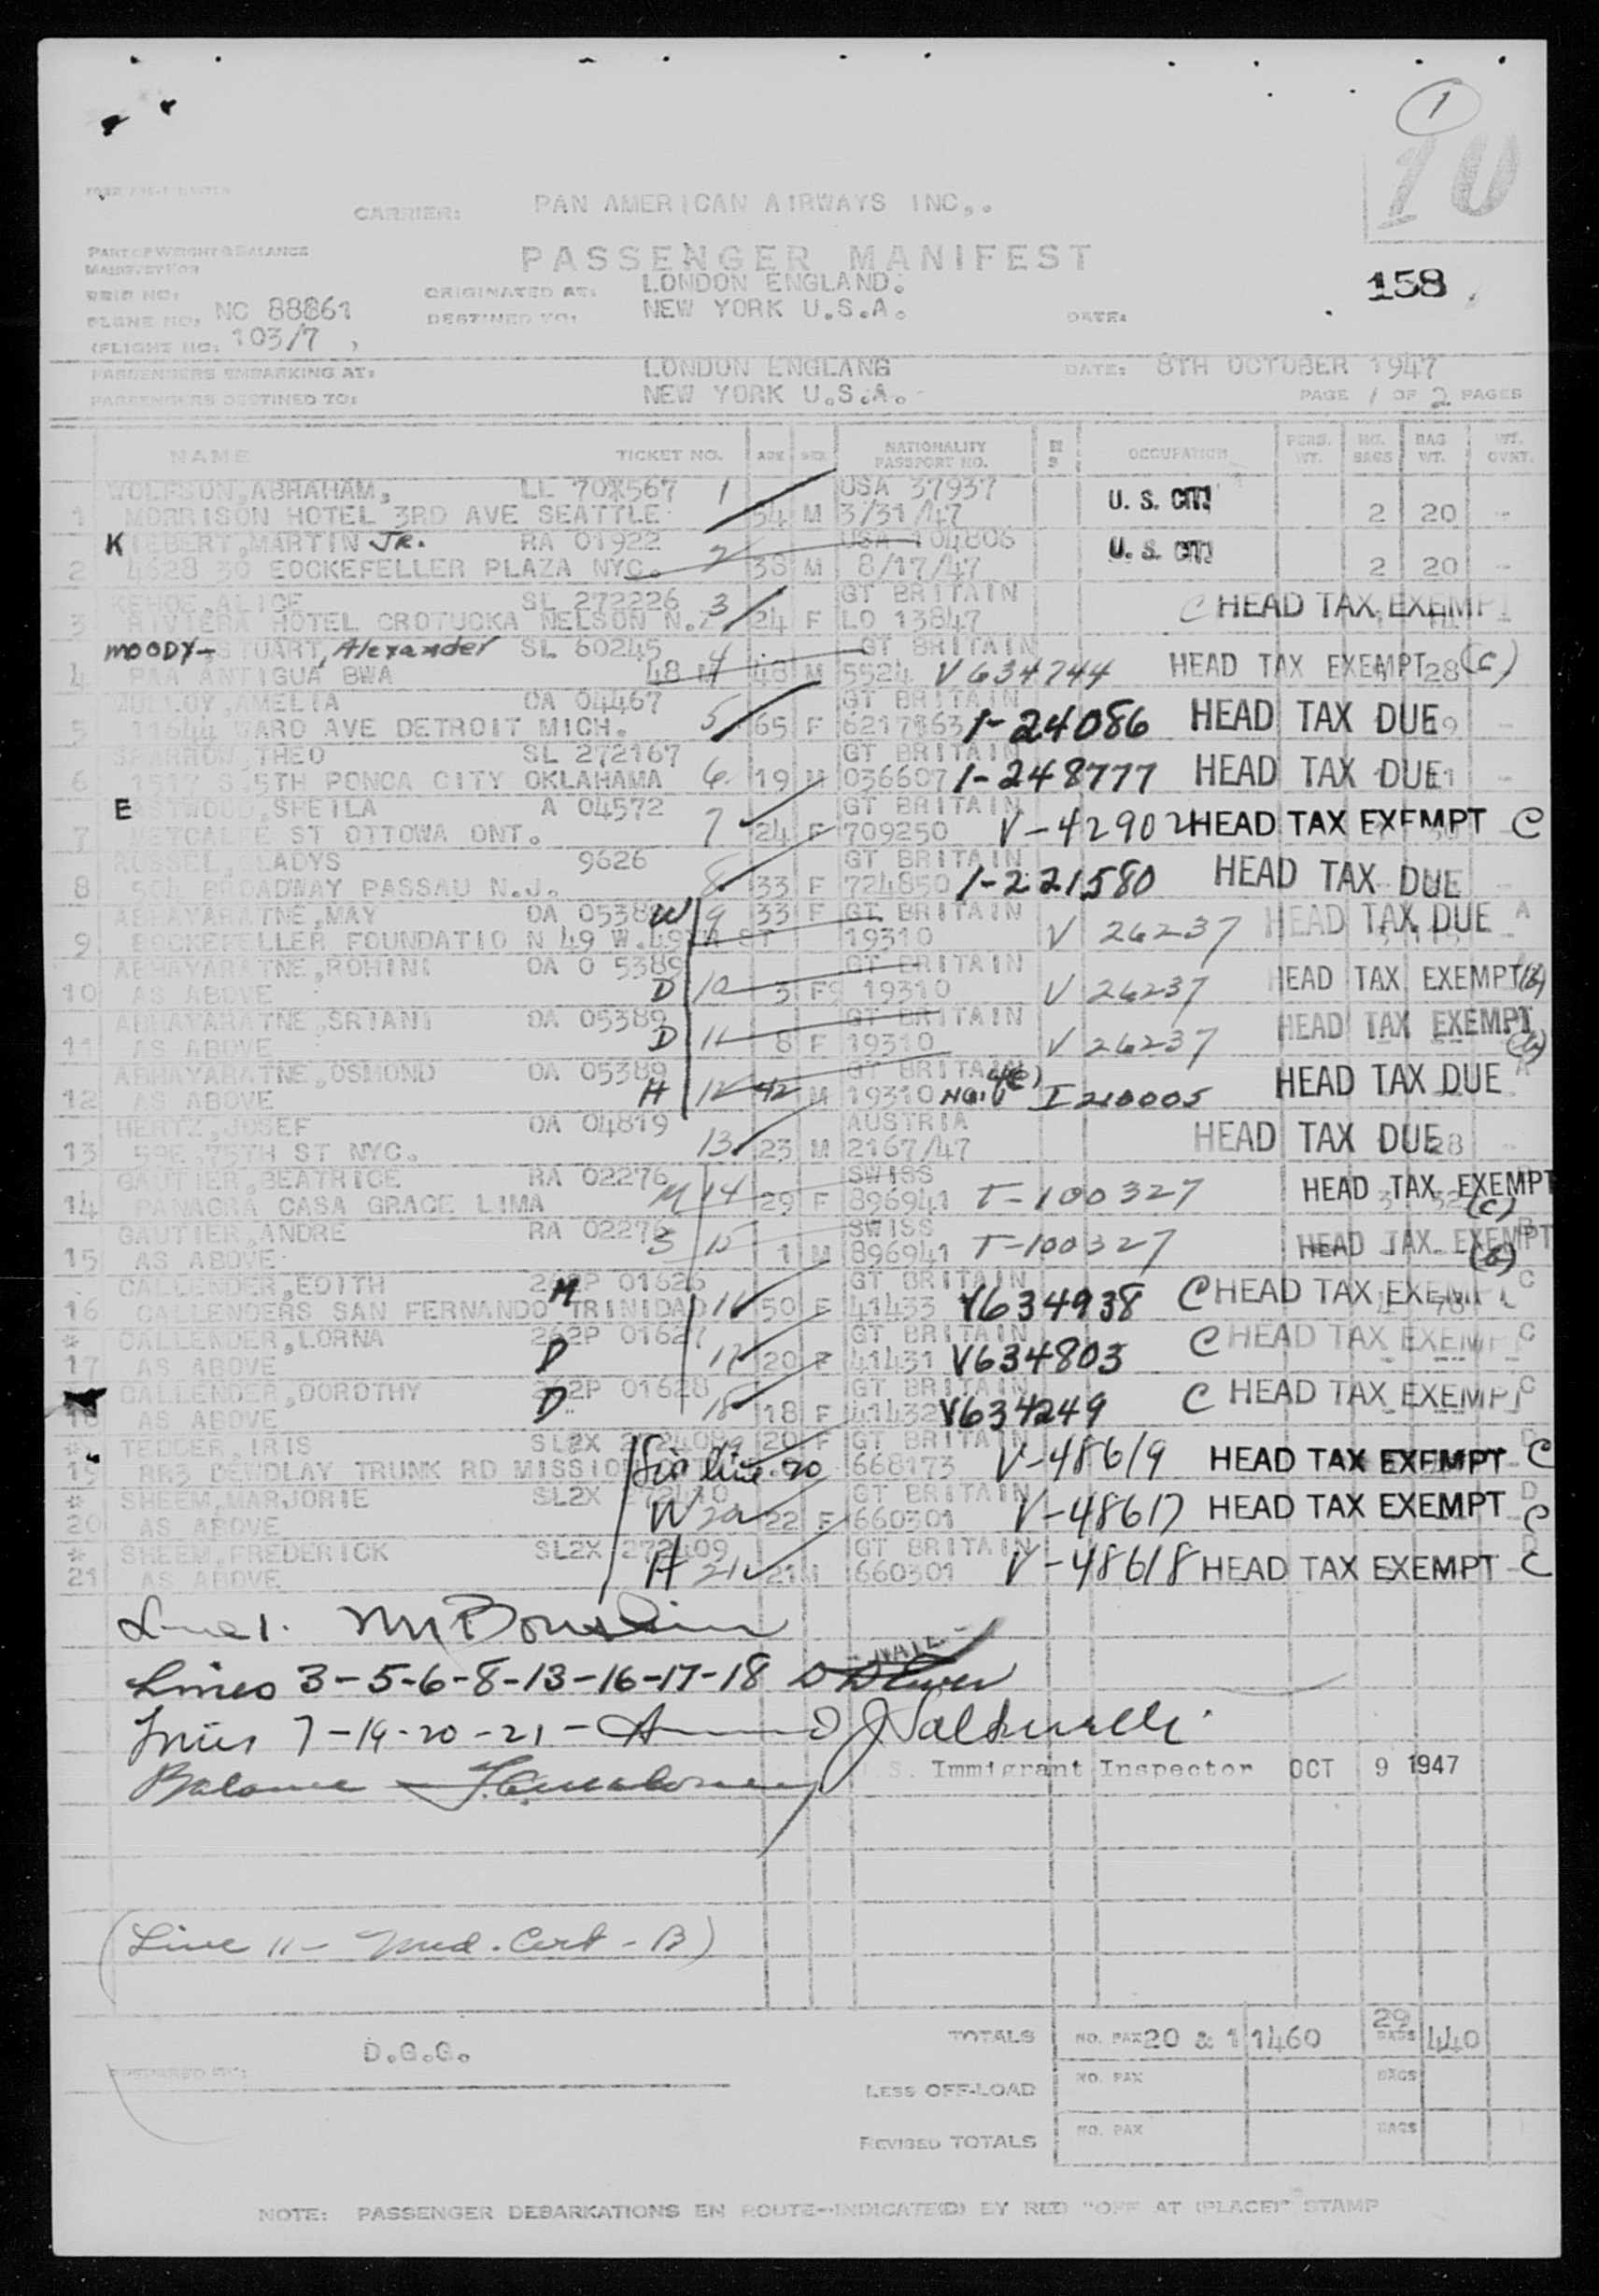 1
10
CARRIER: PAN AMERICAN AIRWAYS INC,.
PART OF WEIGHT & BALANCE
PASSENGER MANIFEST
158
TRIP NO:
ORIGINATED AT: LONDON ENGLAND.
PLANE NO: NC 88861
DESTINED TO: NEW YORK U.S.A.
DATE:
(FLIGHT NO: 103/7
PASSENGERS EMBARKING AT: LONDON ENGLANG
DATE: 8TH OCTOBER 1947
PASSENGERS DESTINED TO: NEW YORK U.S.A.
PAGE 1 OF 2 PAGES
NAME TICKET NO. AGE SEX NATIONALITY PASSPORT NO. OCCUPATION PERS. WT. NO. BAGS BAG WT. WT. OVRT.
WOLFSON,ABRAHAM, LL 70X567 1 USA 37937 U. S. CIT
1 MORRISON HOTEL 3RD AVE SEATTLE 54 M 3/31/47 2 20 -
KILBERT,MARTIN JR. RA 01922 2 USA 104806 U. S. CIT
2 4628 30 EOCKEFELLER PLAZA NYC. 38 M 8/17/47 2 20 -
KEHOE,ALICE SL 272226 3 GT BRITAIN C HEAD TAX EXEMPT
3 RIVIERA HOTEL CROTUCKA NELSON N.Z 24 F LO 13847
MOODY-STUART, Alexander SL 60245 4 GT BRITAIN
4 PAA ANTIGUA BWA 48 M 48 M 5524 V634744 HEAD TAX EXEMPT 28 (C)
MULLOY,AMELIA OA 04467 5 GT BRITAIN
5 11644 WARD AVE DETROIT MICH. 65 F 6217863 1-24086 HEAD TAX DUE 9 -
SPARROW,THEO SL 272167 GT BRITAIN
6 1517 S 5TH PONCA CITY OKLAHAMA 6 19 M 036607 1-248777 HEAD TAX DUE 1 -
EASTWOOD,SHEILA A 04572 GT BRITAIN
7 METCALFE ST OTTOWA ONT. 7 24 F 709250 V-42902 HEAD TAX EXEMPT C
RUSSEL, LADYS 9626 GT BRITAIN
8 504 BROADWAY PASSAU N.J. 8 33 F 724850 1-221580 HEAD TAX DUE
ABHAYARATNE,MAY OA 05389 W 9 33 F GT BRITAIN HEAD TAX DUE A
9 EOCKEFELLER FOUNDATIO N 49 W.49TH ST 19310 V 26237
ABHAYARATNE,ROHINI OA O 5389 GT BRITAIN
10 AS ABOVE D 10 3 F 19310 V 26237 HEAD TAX EXEMPT (b)
ABHAYARATNE,SRIANI OA 05389 GT BRITAIN
11 AS ABOVE D 11 8 F 19310 V 26237 HEAD TAX EXEMPT (b)
ABHAYARATNE,OSMOND OA 05389 GT BRITAIN 4(e)
12 AS ABOVE H 12 42 M 19310 I 210005 HEAD TAX DUE A
HERTZ,JOSEF OA 04819 AUSTRIA
13 59E 75TH ST NYC. 13 23 M 2167/47 HEAD TAX DUE 28 -
GAUTIER,BEATRICE RA 02276 SWISS
14 PANAGRA CASA GRACE LIMA M 14 29 F 896941 T-100327 HEAD TAX EXEMPT (C)
GAUTIER,ANDRE RA 02276 SWISS
15 AS ABOVE S 15 1 M 896941 T-100327 HEAD TAX EXEMPT (b)
CALLENDER,EDITH 262P 01626 GT BRITAIN
16 CALLENDERS SAN FERNANDO TRINIDAD M 16 50 F 41433 V634938 C HEAD TAX EXEMPT C
* CALLENDER,LORNA 262P 01627 GT BRITAIN
17 AS ABOVE D 17 20 F 41431 V634803 C HEAD TAX EXEMPT C
CALLENDER,DOROTHY 262P 01628 GT BRITAIN
18 AS ABOVE D 18 18 F 41432 V634249 C HEAD TAX EXEMPT C
* TEDDER,IRIS SL2X 272408 20 F GT BRITAIN
19 RR3 DEWDLAY TRUNK RD MISSION 668173 V-48619 HEAD TAX EXEMPT C
* SHEEM,MARJORIE SL2X 272410 GT BRITAIN D
20 AS ABOVE W 20 22 F 660301 V-48617 HEAD TAX EXEMPT C
* SHEEM,FREDERICK SL2X 272409 GT BRITAIN
21 AS ABOVE H 21 21 660301 V-48618 HEAD TAX EXEMPT C
Line 1.
Lines 3-5-6-8-13-16-17-18
Lines 7-19-20-21-
Immigrant Inspector OCT 9 1947
Balance
(Line 11 - Med. Cert - B)
TOTALS NO. PAX 20 & 1 1460 29 BAGS 440
D.G.G.
PREPARED BY:
LESS OFF-LOAD NO. PAX BAGS
REVISED TOTALS NO. PAX BAGS
NOTE: PASSENGER DEBARKATIONS EN ROUTE-INDICATE(D) BY RED "OFF AT (PLACE)" STAMP